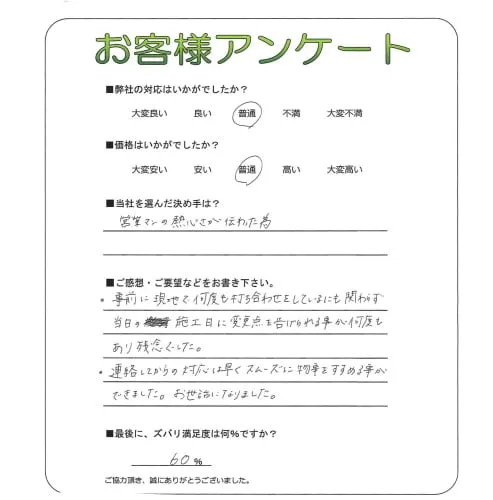 お客様アンケート
■弊社の対応はいかがでしたか？
大変良い 良い 普通 不満 大変不満
■価格はいかがでしたか？
大変安い 安い 普通 高い 大変高い
■当社を選んだ決め手は？
営業マンの熱心さが伝わた為
■ご感想・ご要望などをお書き下さい。
・事前に現地で何度も打ち合わせをしているにも関わらず
当日の 施工日に変更点を告げられる事が何度も
あり残念でした。
・連絡してからの対応は早くスムーズに物事をすすめる事が
できました。お世話になりました。
■最後に、ズバリ満足度は何%ですか？
60 %
ご協力頂き、誠にありがとうございました。